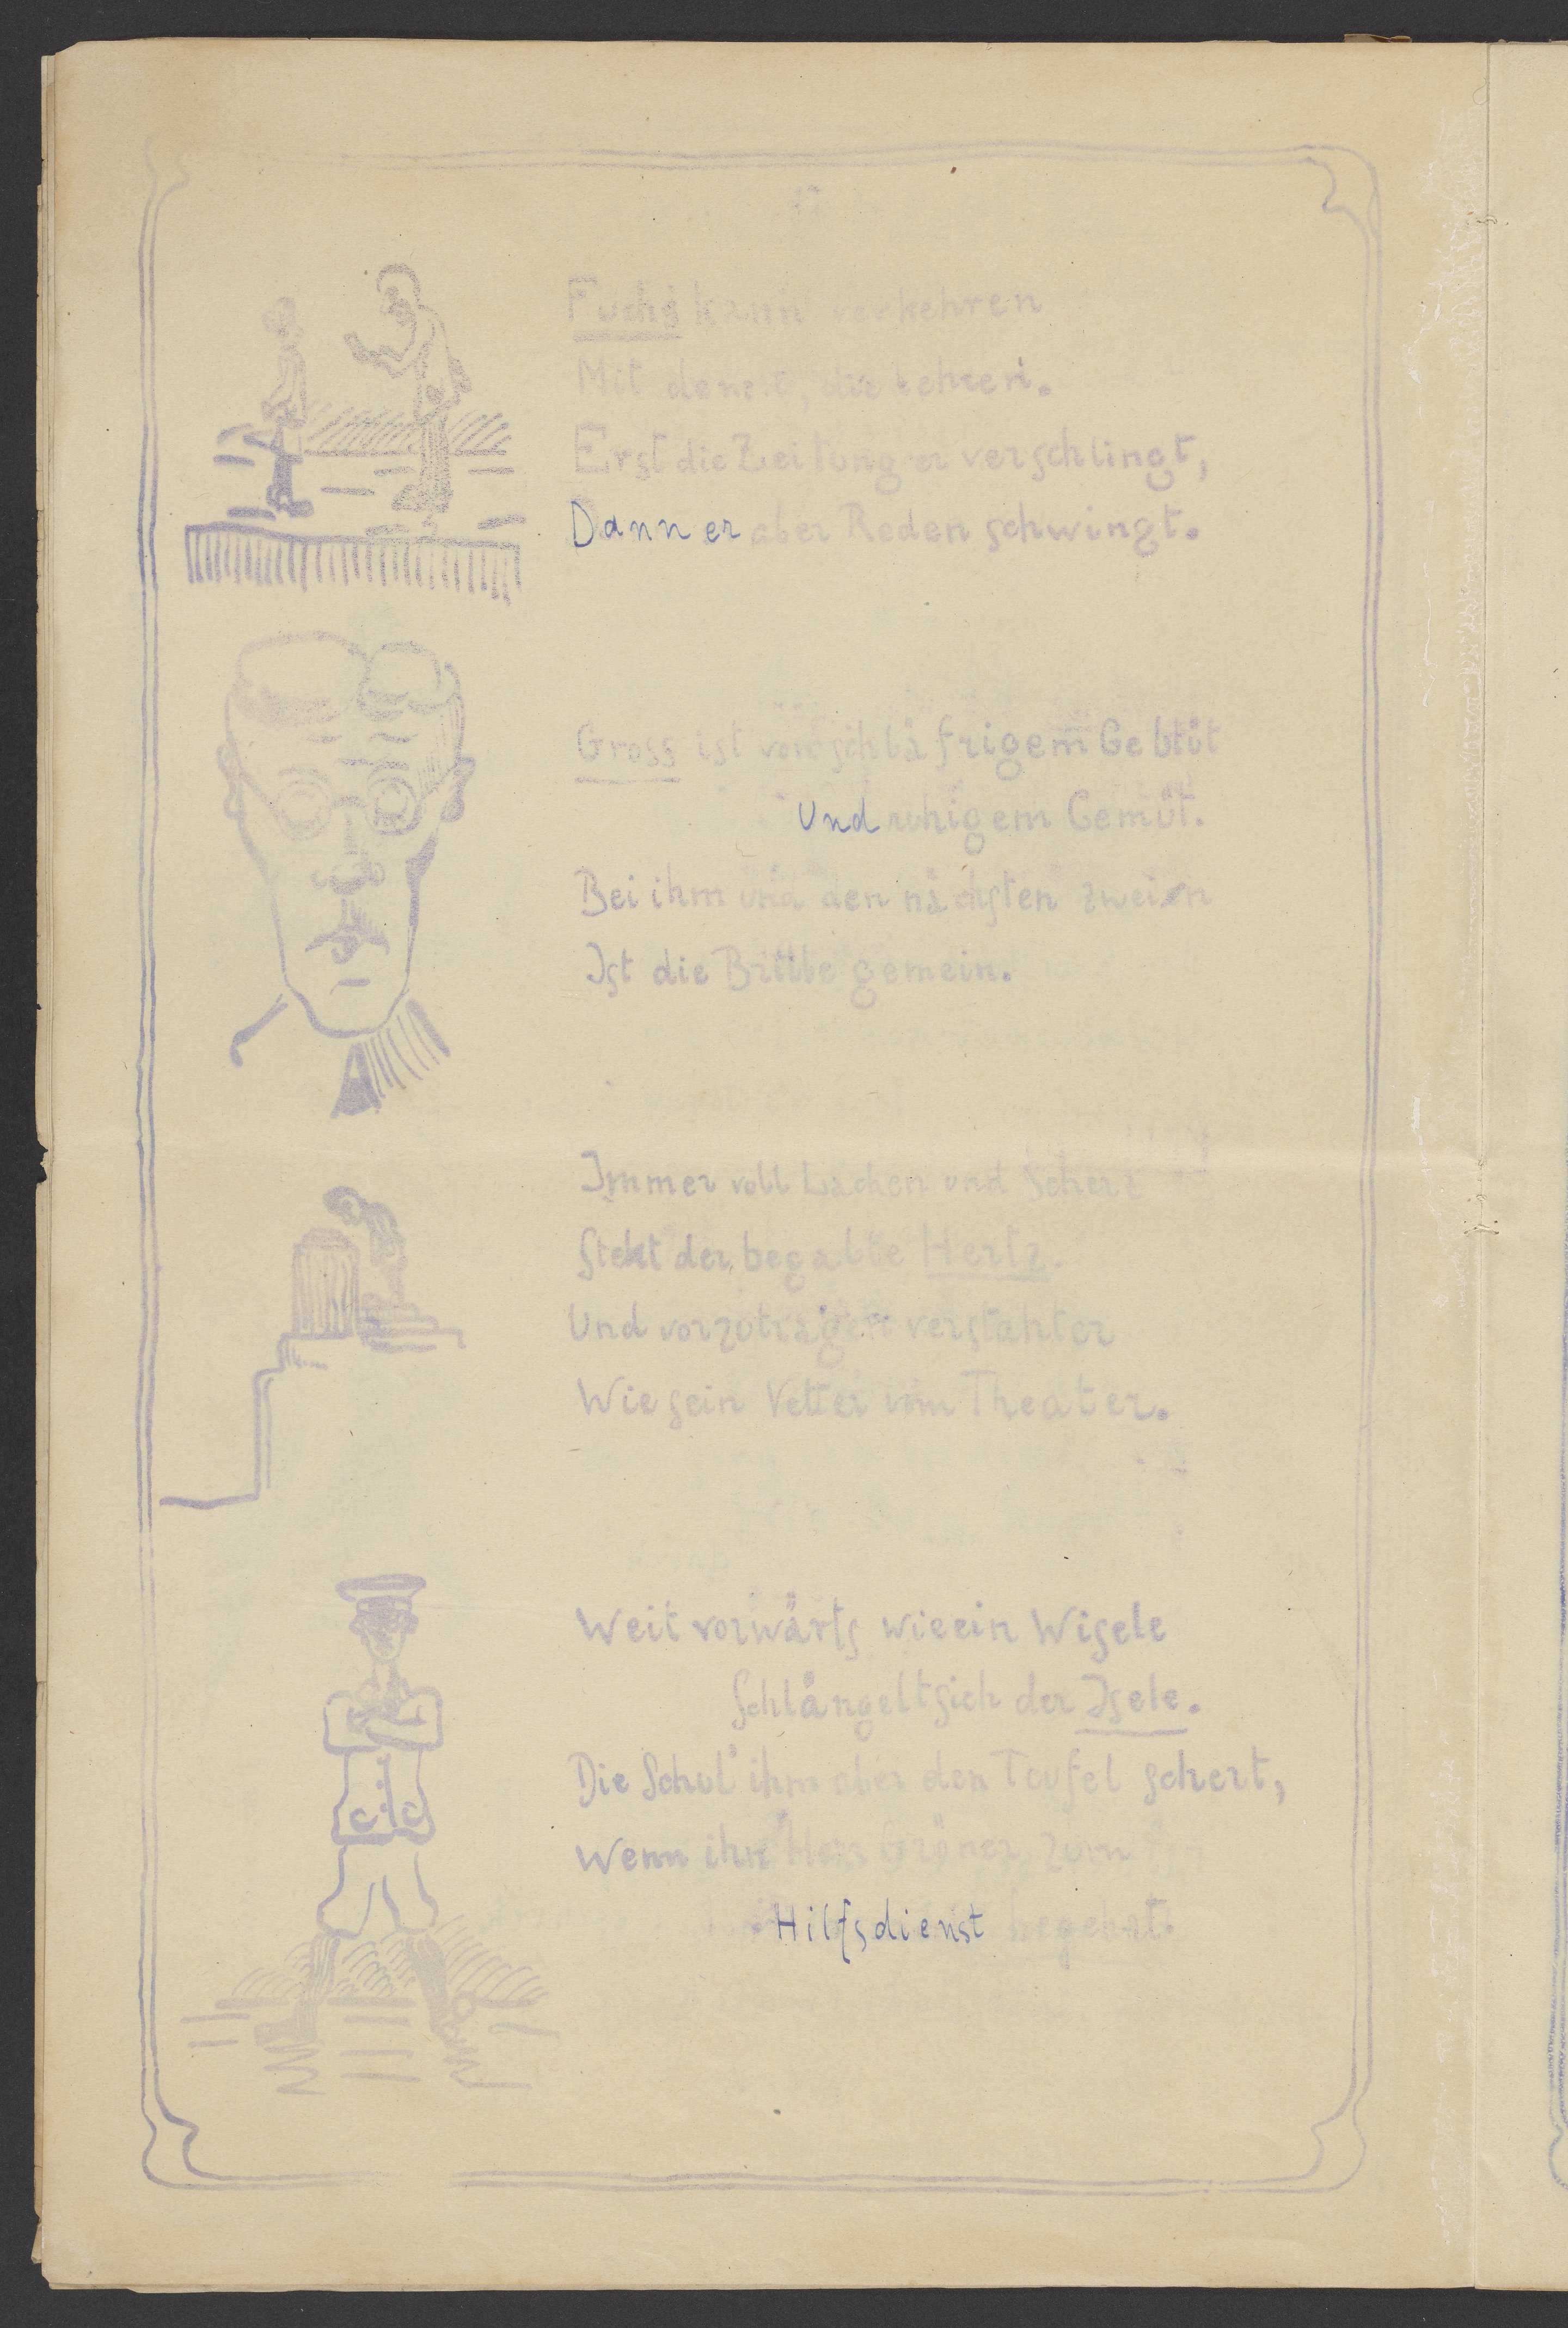 Fuchs kann verkehren
Mit denen, die lehren.
Erst die Zeitung er verschlingt,
Dann er aber Reden schwingt.
Gross ist von schläfrigem Geblüt
Und ruhigem Gemüt.
Bei ihm und den nächsten zwein
Ist die Brille gemein.
Immer voll Lachen und Scherz
Steht der begabte Hertz.
Und vorzutragen verstahter
Wie sein Vetter vom Theater.
Weit vorwärts wie ein Wisele
Schlängelt sich der Isele.
Die Schul' ihm aber den Teufel schert,
Wenn ihn Herr Gröner zum
Hilfsdienst begehrt.